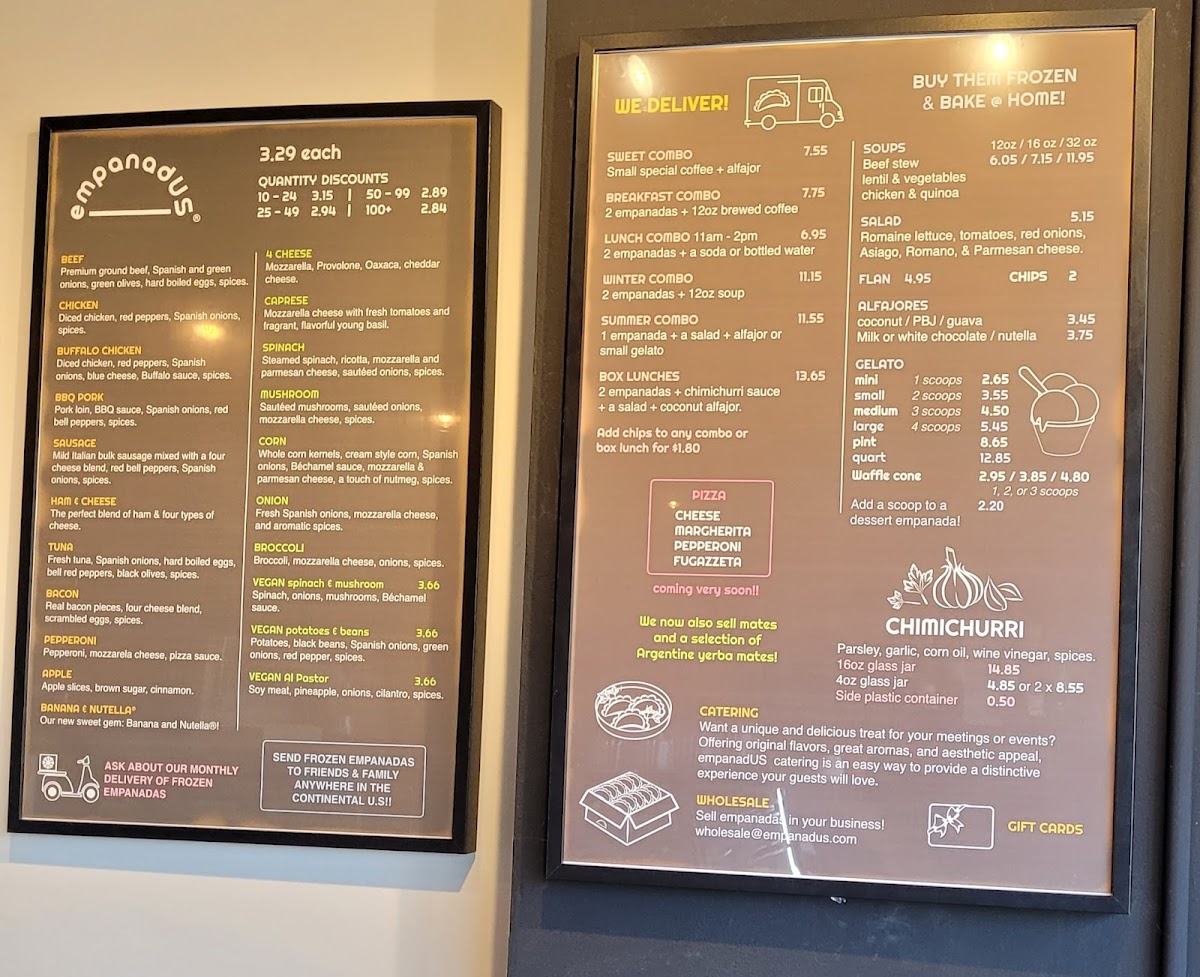 empanadUS®
3.29 each
QUANTITY DISCOUNTS
10 - 24 3.15 | 50 - 99 2.89
25 - 49 2.94 | 100+ 2.84
BEEF
Premium ground beef, Spanish and green
onions, green olives, hard boiled eggs, spices.
CHICKEN
Diced chicken, red peppers, Spanish onions,
spices.
BUFFALO CHICKEN
Diced chicken, red peppers, Spanish
onions, blue cheese, Buffalo sauce, spices.
BBQ PORK
Pork loin, BBQ sauce, Spanish onions, red
bell peppers, spices.
SAUSAGE
Mild Italian bulk sausage mixed with a four
cheese blend, red bell peppers, Spanish
onions, spices.
HAM & CHEESE
The perfect blend of ham & four types of
cheese.
TUNA
Fresh tuna, Spanish onions, hard boiled eggs,
bell red peppers, black olives, spices.
BACON
Real bacon pieces, four cheese blend,
scrambled eggs, spices.
PEPPERONI
Pepperoni, mozzarela cheese, pizza sauce.
APPLE
Apple slices, brown sugar, cinnamon.
BANANA & NUTELLA®
Our new sweet gem: Banana and Nutella®!
4 CHEESE
Mozzarella, Provolone, Oaxaca, cheddar
cheese.
CAPRESE
Mozzarella cheese with fresh tomatoes and
fragrant, flavorful young basil.
SPINACH
Steamed spinach, ricotta, mozzarella and
parmesan cheese, sautéed onions, spices.
MUSHROOM
Sautéed mushrooms, sautéed onions,
mozzarella cheese, spices.
CORN
Whole corn kernels, cream style corn, Spanish
onions, Béchamel sauce, mozzarella &
parmesan cheese, a touch of nutmeg, spices.
ONION
Fresh Spanish onions, mozzarella cheese,
and aromatic spices.
BROCCOLI
Broccoli, mozzarella cheese, onions, spices.
VEGAN spinach & mushroom 3.66
Spinach, onions, mushrooms, Béchamel
sauce.
VEGAN potatoes & beans 3.66
Potatoes, black beans, Spanish onions, green
onions, red pepper, spices.
VEGAN Al Pastor 3.66
Soy meat, pineapple, onions, cilantro, spices.
ASK ABOUT OUR MONTHLY
DELIVERY OF FROZEN
EMPANADAS
SEND FROZEN EMPANADAS
TO FRIENDS & FAMILY
ANYWHERE IN THE
CONTINENTAL U.S!!
WE DELIVER!
BUY THEM FROZEN
& BAKE @ HOME!
SWEET COMBO 7.55
Small special coffee + alfajor
BREAKFAST COMBO 7.75
2 empanadas + 12oz brewed coffee
LUNCH COMBO 11am - 2pm 6.95
2 empanadas + a soda or bottled water
WINTER COMBO 11.15
2 empanadas + 12oz soup
SUMMER COMBO 11.55
1 empanada + a salad + alfajor or
small gelato
BOX LUNCHES 13.65
2 empanadas + chimichurri sauce
+ a salad + coconut alfajor.
Add chips to any combo or
box lunch for $1.80
PIZZA
CHEESE
MARGHERITA
PEPPERONI
FUGAZZETA
coming very soon!!
We now also sell mates
and a selection of
Argentine yerba mates!
SOUPS 12oz / 16 oz / 32 oz
Beef stew 6.05 / 7.15 / 11.95
lentil & vegetables
chicken & quinoa
SALAD 5.15
Romaine lettuce, tomatoes, red onions,
Asiago, Romano, & Parmesan cheese.
FLAN 4.95 CHIPS 2
ALFAJORES
coconut / PBJ / guava 3.45
Milk or white chocolate / nutella 3.75
GELATO
mini 1 scoops 2.65
small 2 scoops 3.55
medium 3 scoops 4.50
large 4 scoops 5.45
pint 8.65
quart 12.85
Waffle cone 2.95 / 3.85 / 4.80
1, 2, or 3 scoops
Add a scoop to a 2.20
dessert empanada!
CHIMICHURRI
Parsley, garlic, corn oil, wine vinegar, spices.
16oz glass jar 14.85
4oz glass jar 4.85 or 2 x 8.55
Side plastic container 0.50
CATERING
Want a unique and delicious treat for your meetings or events?
Offering original flavors, great aromas, and aesthetic appeal,
empanadUS catering is an easy way to provide a distinctive
experience your guests will love.
WHOLESALE
Sell empanadas in your business!
wholesale@empanadus.com
GIFT CARDS